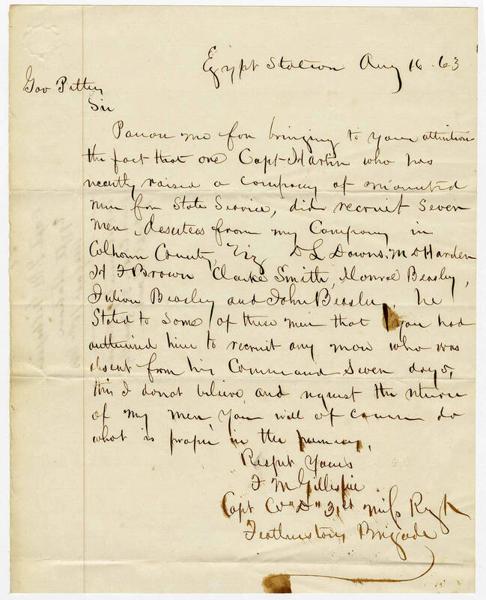 Egypt Station Aug 16 63
Gov Pettus
Sir
Pardon me for bringing to your attention
the fact that one Capt Martin who has
recently raised a company of mounted
men for State Service, did recruit Seven
Men, deserters from my Company in
Calhoun County, Viz D L Downs, M D Harden
H J Brown Clarke Smith, Monroe Beasley,
Julian Beasley and John Beasley. he
Stated to Some of these men that you had
authorized him to recruit any man who was
absent from his Command Seven days,
this I do not believe, and request the return
of my men, You will of course do
what is proper in the premises,
Respt Yours
J M Gillespie
Capt Co "D" 31st Miss Regt
Featherstons Brigade